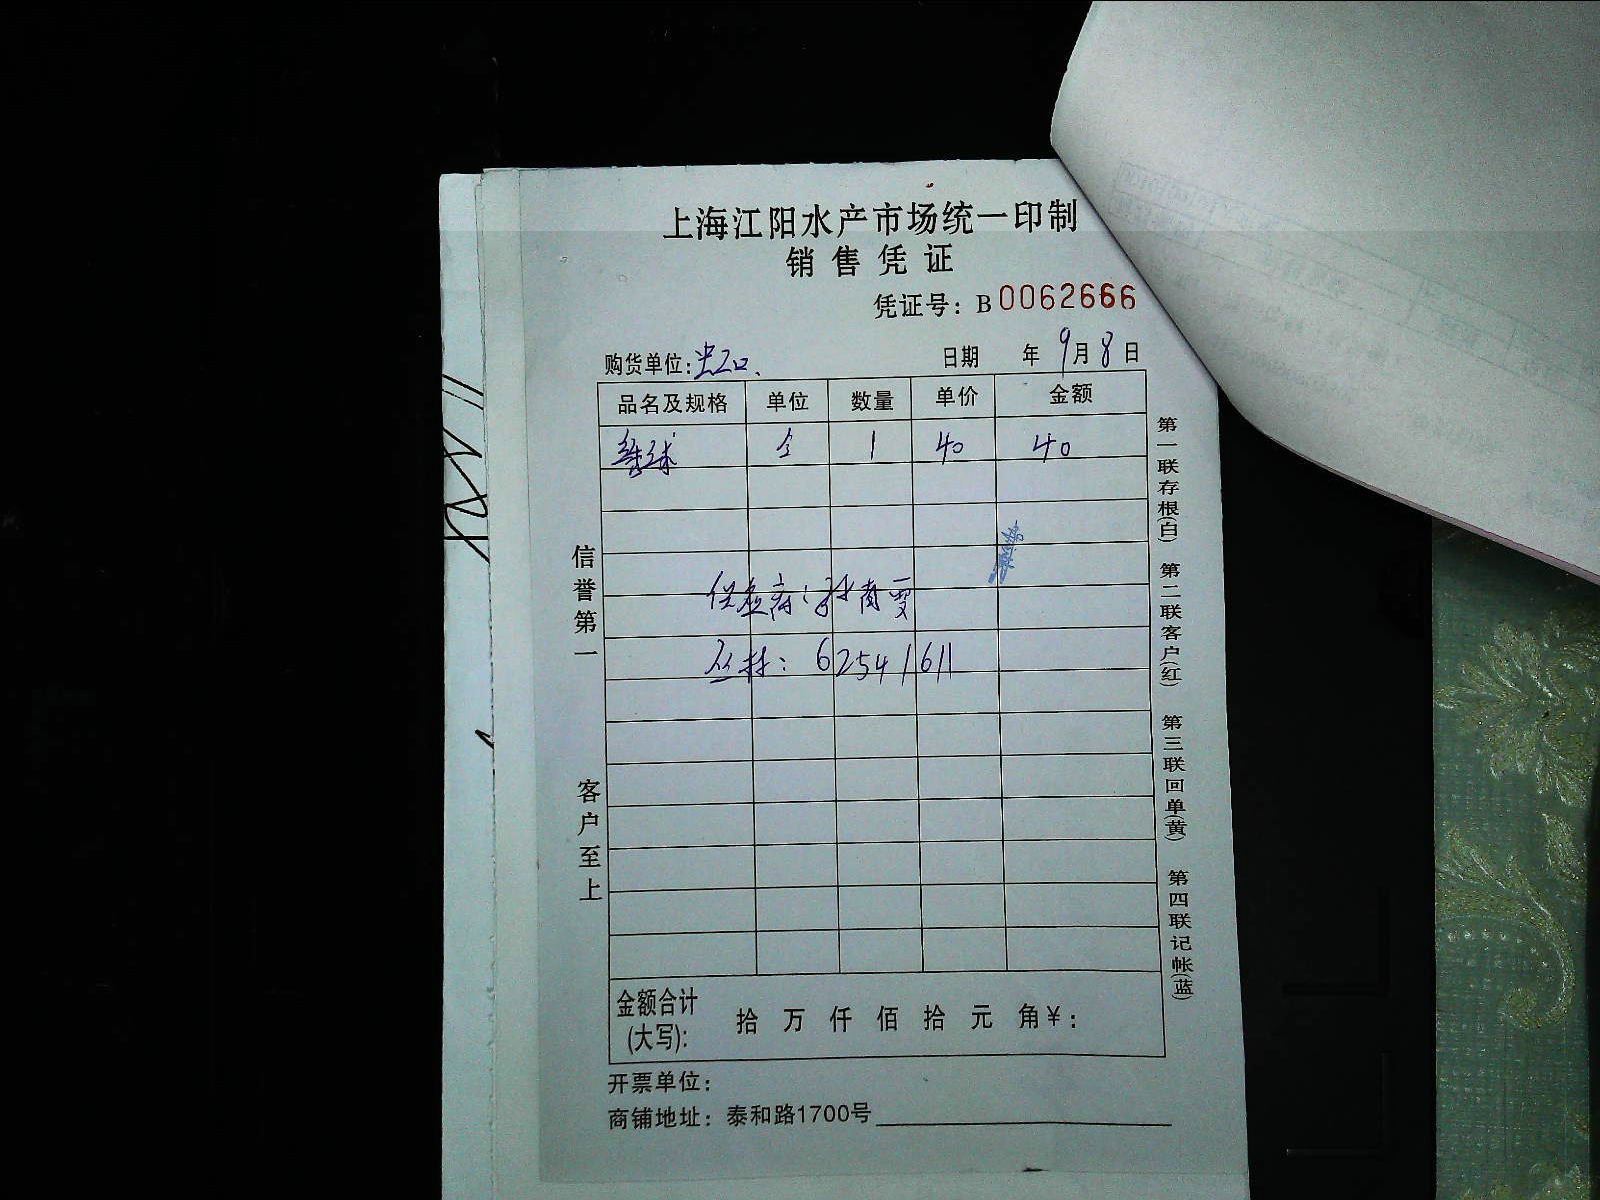 上海江阳水产市场统一印制
销售凭证
凭证号：B 0062666
购货单位：
日期 年 9月 8日
品名及规格 单位 数量 单价 金额
球 1 40 40
供应商：
电封：62541611
信誉第一
客户至上
第一联存根(白) 第二联客户(红) 第三联回单(黄) 第四联记帐(蓝)
金额合计
(大写)：
拾 万 仟 佰 拾 元 角 ¥：
开票单位：
商铺地址：泰和路1700号